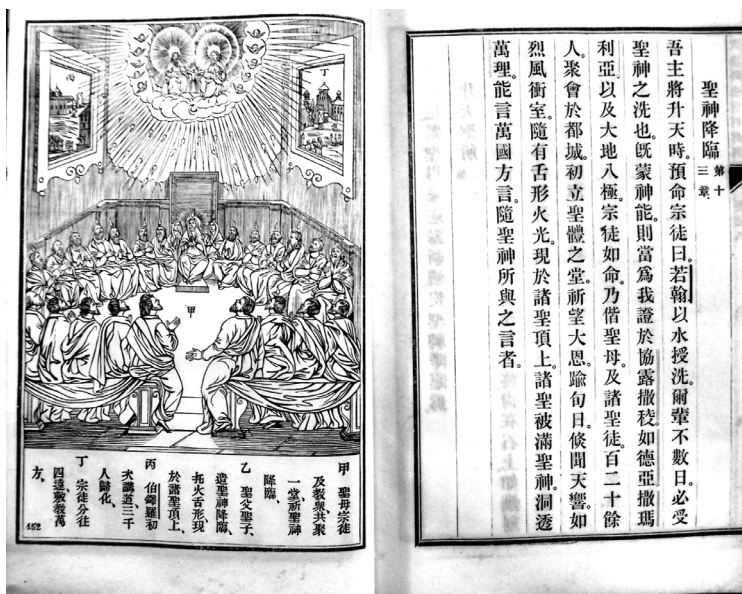 聖神降臨 第十三章
吾主將升天時。預命宗徒曰。若翰以水授洗。爾輩不數日。必受
聖神之洗也。旣蒙神能。則當爲我證於協露撒稜。如德亞。撒瑪
利亞。以及大地八極。宗徒如命。乃偕聖母。及諸聖徒。百二十餘
人。聚會於都城。初立聖體之堂。祈望大恩。踰旬日。倐聞天響。如
烈風衝室。隨有舌形火光。現於諸聖頂上。諸聖被滿聖神。洞透
萬理。能言萬國方言。隨聖神所與之言者。
丁
丙
甲
甲 聖母宗徒
及敎與共聚
一堂祈聖神
降臨、
乙 聖父聖子、
遣聖神降臨、
托火舌形現
於諸聖頂上、
丙 伯鐸羅初
次講道三千
人歸化、
丁 宗徒分往
四遠敷敎萬
方。
452